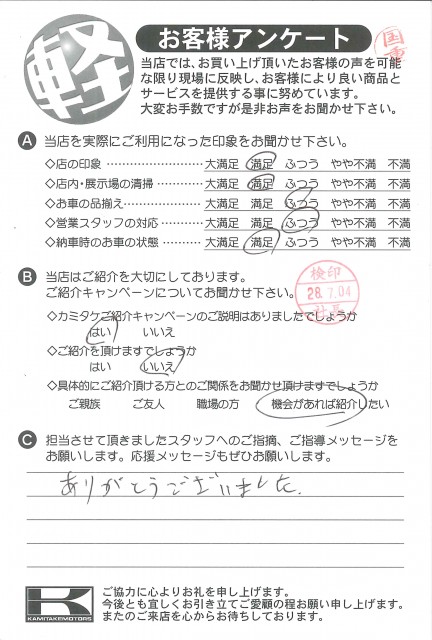 軽
お客様アンケート
当店では、お買い上げ頂いたお客様の声を可能
な限り現場に反映し、お客様により良い商品と
サービスを提供する事に努めています。
大変お手数ですが是非お声をお聞かせ下さい。
A 当店を実際にご利用になった印象をお聞かせ下さい。
◇店の印象 ………………………… 大満足 満足 ふつう やや不満 不満
◇店内・展示場の清掃 ………… 大満足 満足 ふつう やや不満 不満
◇お車の品揃え………………… 大満足 満足 ふつう やや不満 不満
◇営業スタッフの対応 ………… 大満足 満足 ふつう やや不満 不満
◇納車時のお車の状態 ………… 大満足 満足 ふつう やや不満 不満
B 当店はご紹介を大切にしております。
ご紹介キャンペーンについてお聞かせ下さい。
検印
28.7.04
◇カミタケご紹介キャンペーンのご説明はありましたでしょうか
はい いいえ
◇ご紹介を頂けますでしょうか
はい いいえ
◇具体的にご紹介頂ける方とのご関係をお聞かせ頂けますでしょうか
ご親族 ご友人 職場の方 機会があれば紹介したい
C 担当させて頂きましたスタッフへのご指摘、ご指導メッセージを
お願いします。応援メッセージもぜひお願いします。
ありがとうございました.
K
KAMITAKEMOTORS
ご協力に心よりお礼を申し上げます。
今後とも宜しくお引き立てご愛顧の程お願い申し上げます。
またのご来店を心からお待ちしております。